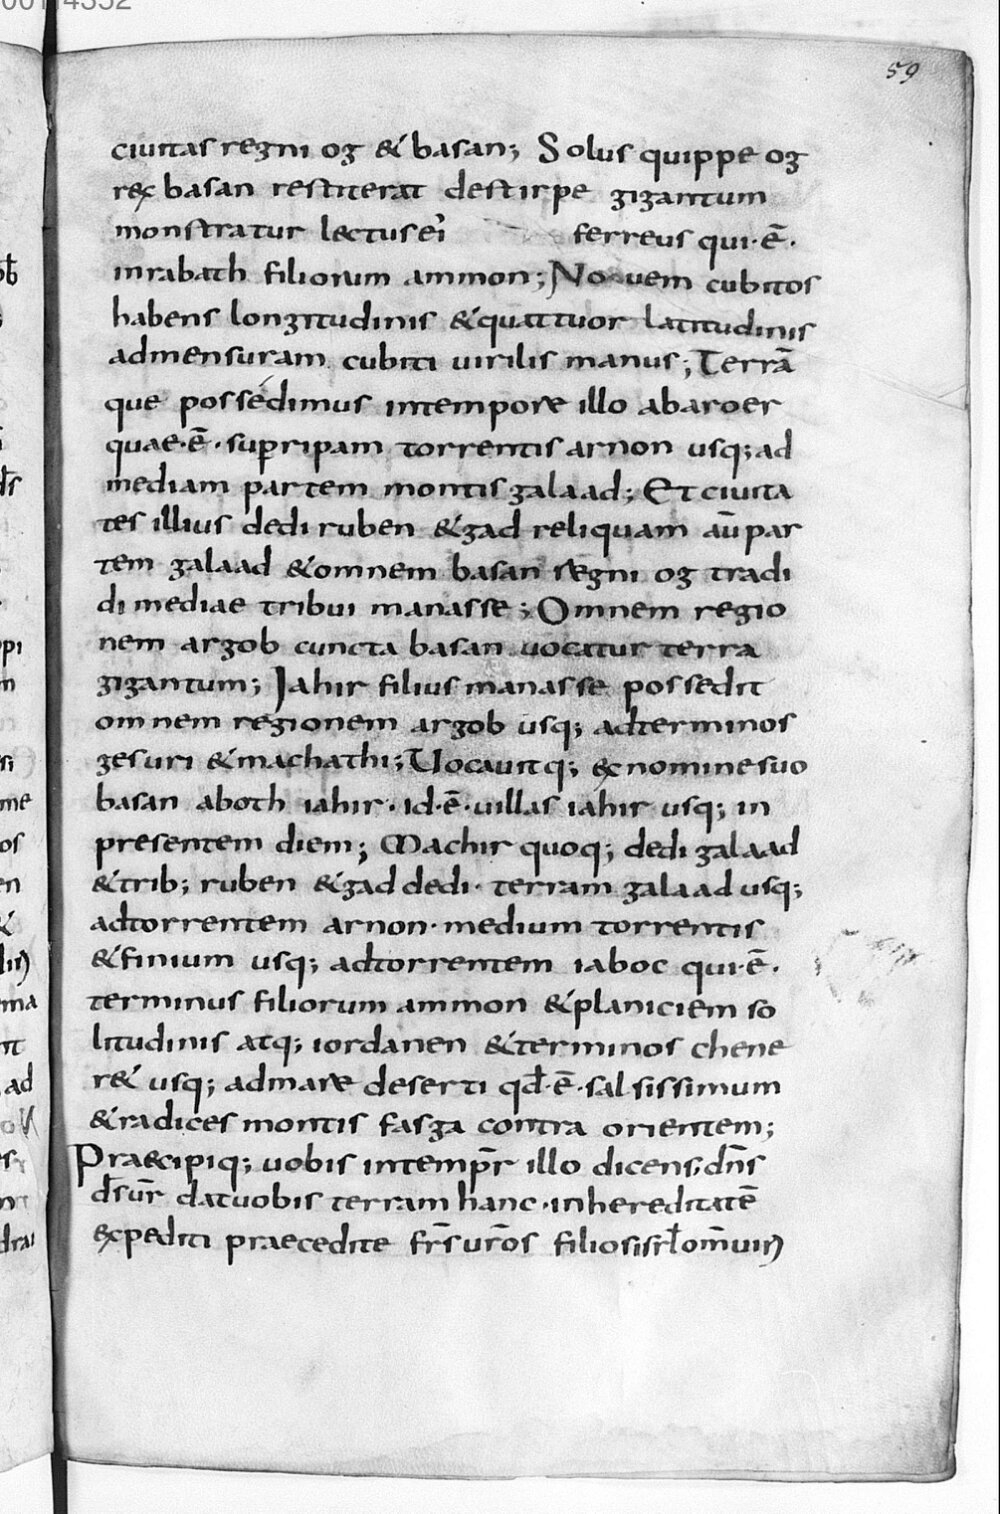 59
ciuitas regni og & basan; Solus quippe og
rex basan restiterat destirpe gigantum
monstratur lectus ei ferreus qui·ē·
inrabath filiorum ammon; Nouem cubitos
habens longitudinis & quattuor latitudinis
admensuram cubiti uirilis manus; Terrā
que possedimus intempore illo abaroer
quae·ē·supripam torrentis arnon usq; ad
mediam partem montis galaad; Et ciuita
tes illius dedi ruben & gad reliquam aū par
tem galaad & omnem basan regni og tradi
di mediae tribui manasse; Omnem regio
nem argob cuncta basan uocatur terra
gigantum; Jahir filius manasse possedit
omnem regionem argob usq; adterminos
gesuri & machathi; Uocauitq; ex nomine suo
basan aboth iahir· id·ē·uillas iahir usq; in
presentem diem; Machir quoq; dedi galaad
& trib; ruben & gad dedi· terram galaad usq;
adtorrentem arnon· medium torrentis
& finium usq; adtorrentem iaboc qui·ē·
terminus filiorum ammon & planiciem so
litudinis atq; iordanen & terminos chene
r& usq; admare deserti qđ·ē·salsissimum
& radices montis fasga contra orientem;
Praecipiq; uobis intempr̄ illo dicens; dn̄s
ds̄ ur̄ dat uobis terram hanc· inhereditatē
expediti praecedite fr̄s ur̄os filios isrł om̄ uiri